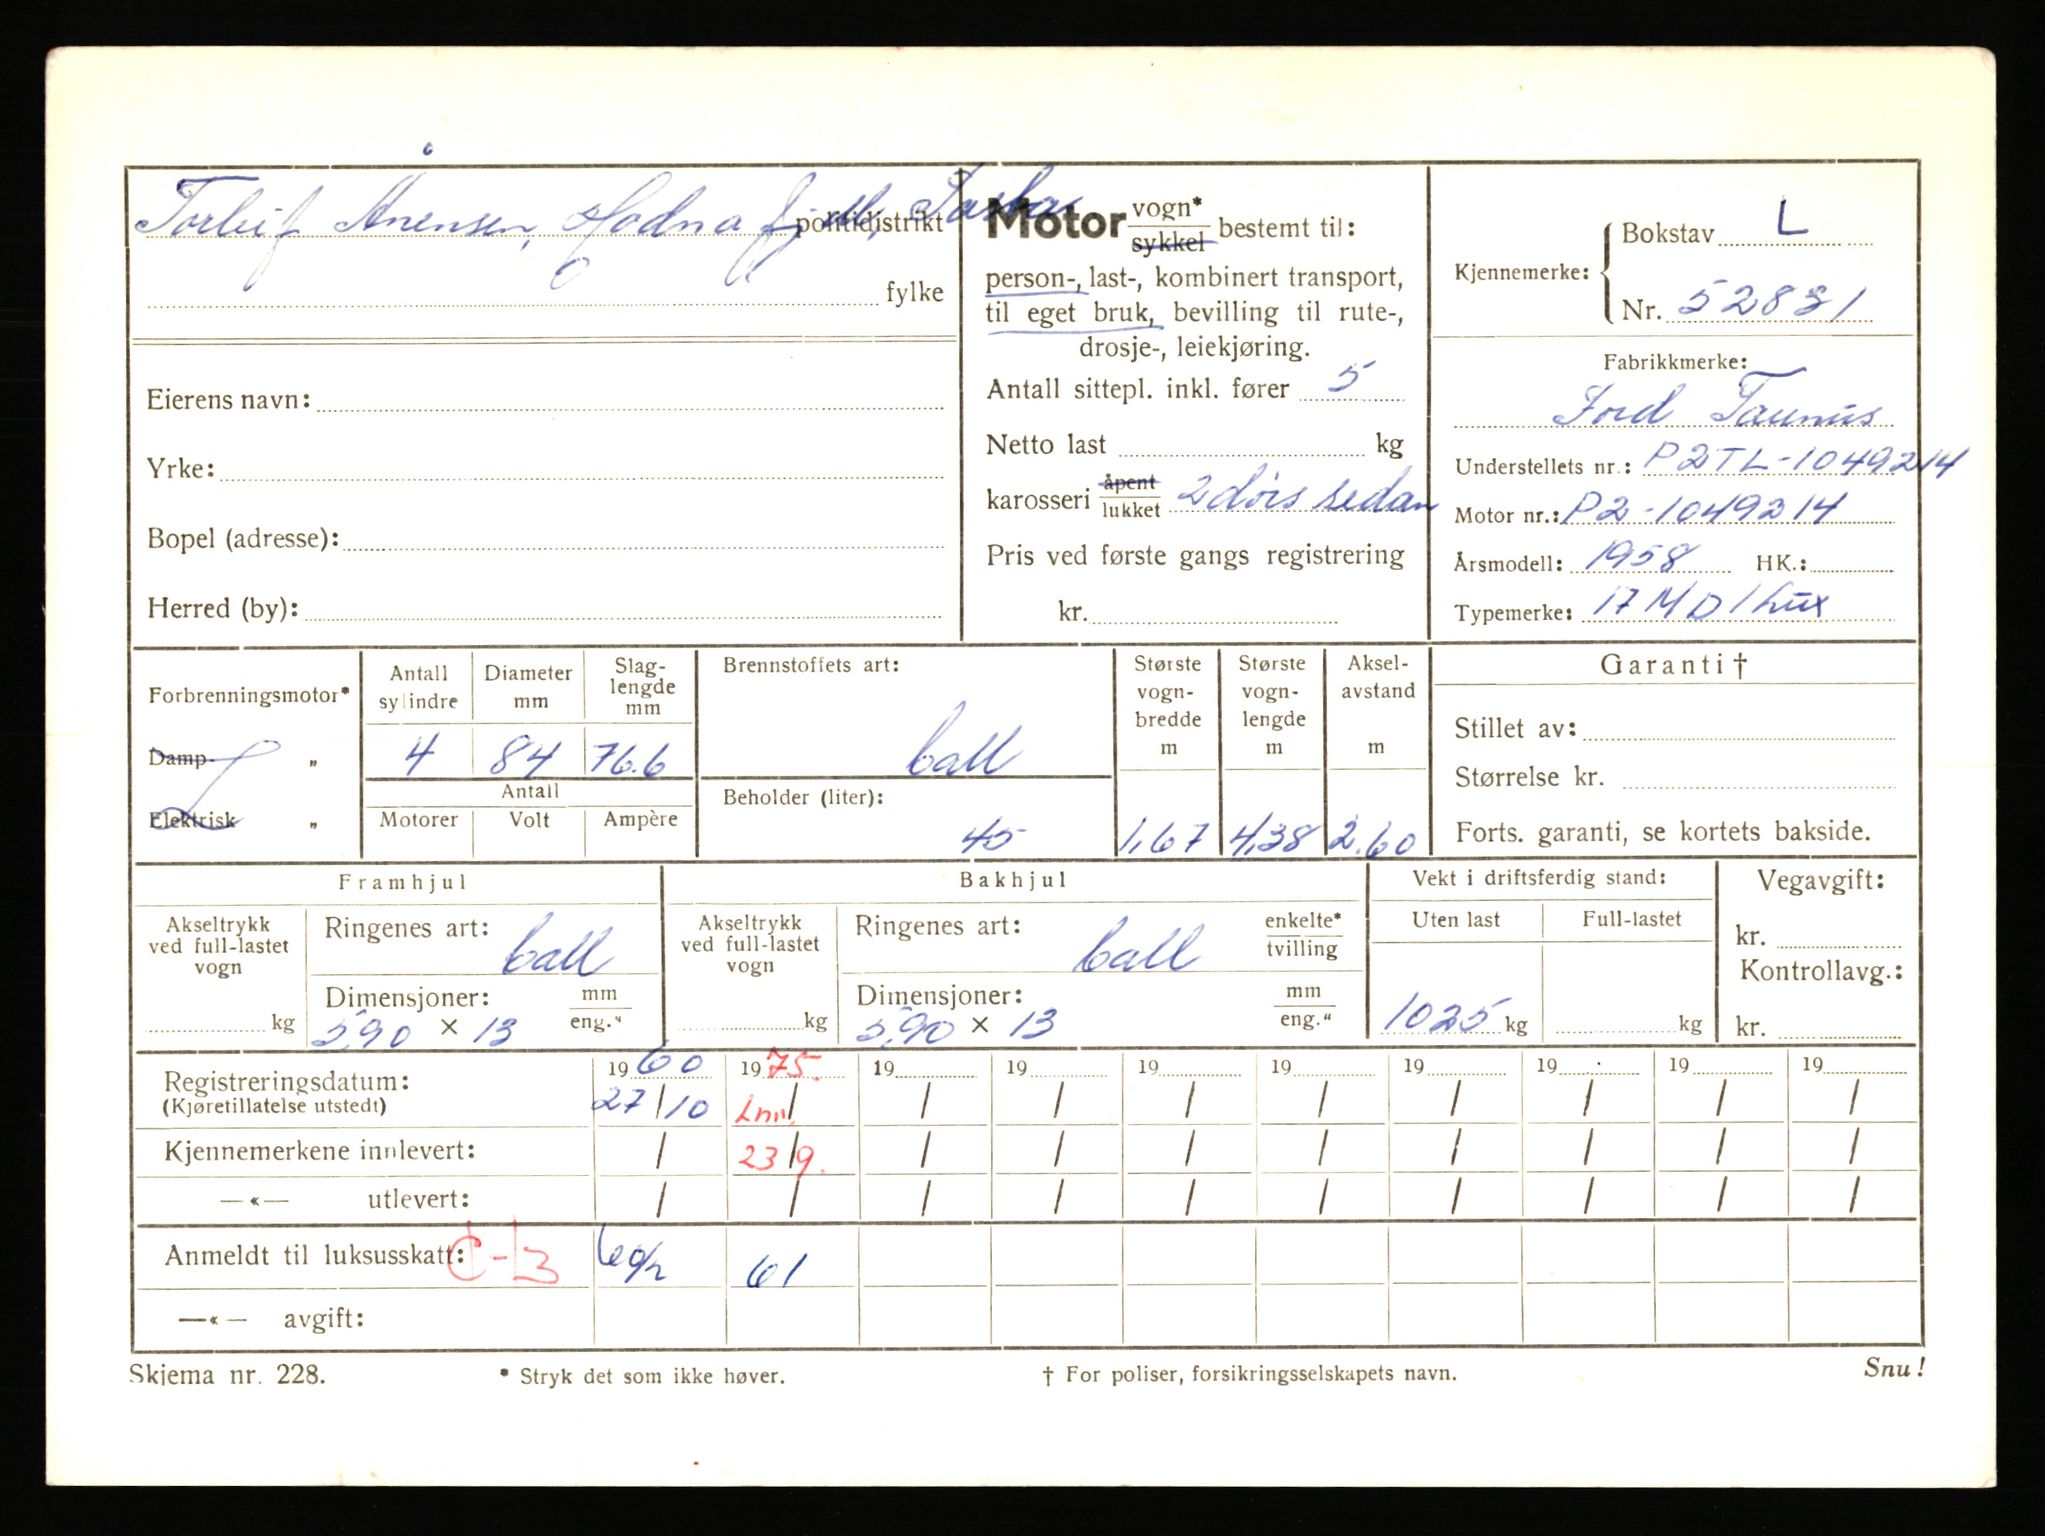 Torleif Ånensen, politidistrikt
fylke
Eierens navn:
Yrke:
Bopel (adresse):
Herred (by):
Motor vogn* sykkel bestemt til:
person-, last-, kombinert transport,
til eget bruk, bevilling til rute-,
drosje-, leiekjøring.
Antall sittepl. inkl. fører 5
Netto last kg
karosseri åpent lukket 2 dørs sedan
Pris ved første gangs registrering
kr.
Kjennemerke: Bokstav L
Nr. 52831
Fabrikkmerke:
Ford Taunus
Understellets nr.: P2TL-1049214
Motor nr.: P2-1049214
Årsmodell: 1958 HK.:
Typemerke: 17 M D/Lux
Forbrenningsmotor*
Damp- „
Elektrisk „
Antall sylindre Diameter mm Slag-lengde mm
4 84 76.6
Antall
Motorer Volt Ampère
Brennstoffets art:
Beholder (liter):
45
Største vogn-bredde m Største vogn-lengde m Aksel-avstand m
1,67 4,38 2.60
Garanti †
Stillet av:
Størrelse kr.
Forts. garanti, se kortets bakside.
Framhjul
Akseltrykk ved full-lastet vogn kg
Ringenes art: ball
Dimensjoner: mm eng."
5,90 × 13
Bakhjul
Akseltrykk ved full-lastet vogn kg
Ringenes art: ball enkelte* tvilling
Dimensjoner: mm eng."
5,90 × 13
Vekt i driftsferdig stand:
Uten last Full-lastet
1025 kg kg
Vegavgift:
kr.
Kontrollavg.:
kr.
Registreringsdatum: 1960 1975. 19 19 19 19 19 19 19 19
(Kjøretillatelse utstedt) 27/10 / / / / / / / / /
Kjennemerkene innlevert: / 23/9. / / / / / / / /
—«— utlevert: / / / / / / / / / /
Anmeldt til luksusskatt: C-3 61
—«— avgift:
Skjema nr. 228. * Stryk det som ikke høver. † For poliser, forsikringsselskapets navn. Snu!